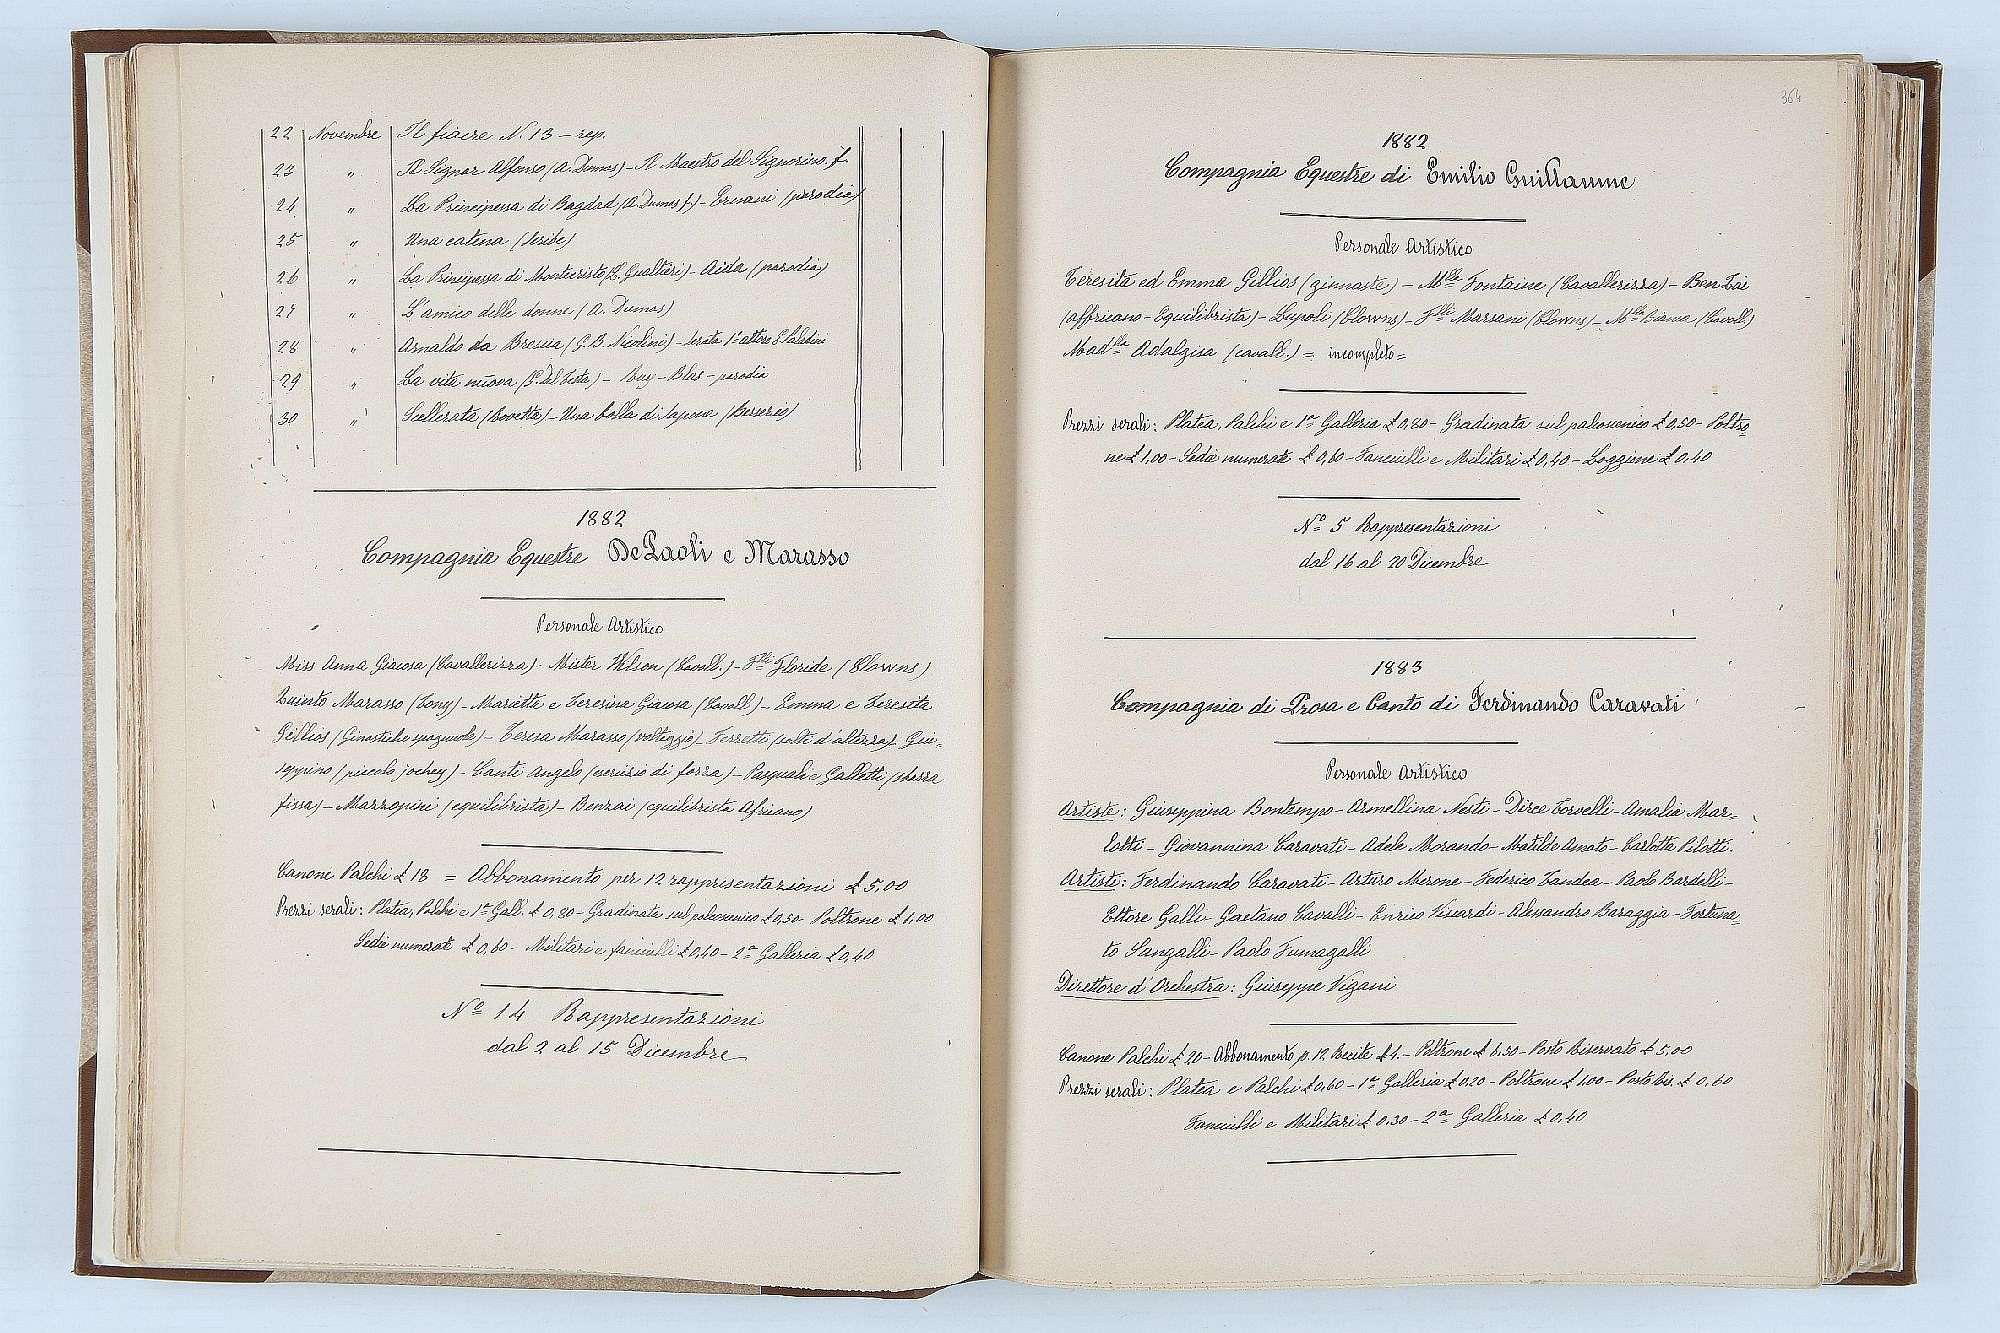 22 Novembre Il fiacre N. 13 - rep.
23 " Il Signor Alfonso (A. Dumas) - Il Maestro del Signorino, f.
24 " La Principessa di Bagdad (A. Dumas f.) - Ernani (parodia)
25 " Una catena (Scribe)
26 " La Principessa di Montecristo (L. Gualtieri) - Aida (parodia)
27 " L'amico delle donne (A. Dumas)
28 " Arnaldo da Brescia (G. B. Nicolini) - serata 1º attore
29 " La vita nuova (P. del Testa) - Ruy-Blas - parodia
30 " Scellerata (Rovetta) - Una bolla di sapone (Bersezio)
1882
Compagnia Equestre De Paoli e Marasso
Personale Artistico
Miss Anna Giacosa (Cavallerizza) - Mister Wilson (Cavall.) - Flli Floride (Clowns)
Quinto Marasso (Tony) - Marietta e Teresina Giacosa (Cavall.) - Emma e Teresita
Gillios (Ginastiche spagnuole) - Teresa Marasso (volteggio) - Ferretti (salti d'altezza) - Giu-
seppino (piccolo jockey) - Conti Angelo (esercizio di forza) - Pasquali e Galletti (sbarra
fissa) - Mazzopini (equilibrista) - Benzai (equilibrista Africano)
Canone Palchi £ 18 = Abbonamento per 12 rappresentazioni £ 5,00
Prezzi serali: Platea, Palchi e 1ª Gall. £ 0,80 - Gradinata sul palcoscenico £ 0,50 - Poltrone £ 1,00
Sedie numerate £ 0,60 - Militari e fanciulli £ 0,40 - 2ª Galleria £ 0,40
Nº 14 Rappresentazioni
dal 2 al 15 Dicembre
364
1882
Compagnia Equestre di Emilio Guillaume
Personale Artistico
Teresita ed Emma Gillios (ginnaste) - Mlle Fontaine (Cavallerizza) - Ben Zai
(affricano - Equilibrista) - Lupoli (Clowns) - Flli Marsani (Clowns) - Mlle Bianca (Cavall.)
Madlla Adalgisa (cavall.) = incompleto =
Prezzi serali: Platea, Palchi e 1ª Galleria £ 0,80 - Gradinata sul palcoscenico £ 0,50 - Poltro-
ne £ 1,00 - Sedie numerate £ 0,60 - Fanciulli e Militari £ 0,40 - Loggione £ 0,40
Nº 5 Rappresentazioni
dal 16 al 20 Dicembre
1883
Compagnia di Prosa e Canto di Ferdinando Caravati
Personale Artistico
Artiste: Giuseppina Bontempo - Armellina Nesti - Dirce Forvelli - Amalia Mar-
lotti - Giovannina Caravati - Adele Morando - Matilde Amato - Carlotta Pilotti.
Artisti: Ferdinando Caravati - Arturo Merone - Federico Landea - Paolo Bardelli -
Ettore Galli - Gaetano Cavalli - Enrico Viscardi - Alessandro Baraggia - Fortuna-
to Sangalli - Paolo Fumagalli
Direttore d'Orchestra: Giuseppe Vigani
Canone Palchi £ 20 - Abbonamento p. 12 Recite £ 4. - Poltrone £ 6.50 - Posto Riservato £ 5,00
Prezzi serali: Platea e Palchi £ 0,60 - 1ª Galleria £ 0,20 - Poltrone £ 1,00 - Posto Ris. £ 0,60
Fanciulli e Militari £ 0.30 - 2ª Galleria £ 0,40